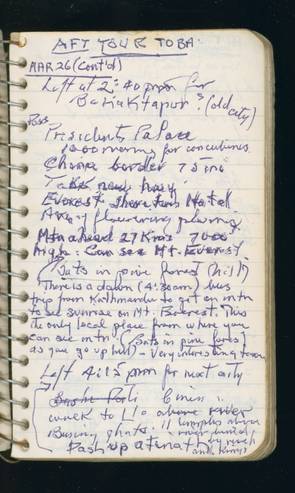 AFT TOUR TO BA.
MAR 26 (Cont'd)
Left at 2:40 pm for
Bahaktapur? (old city)
Pass
Presidents Palace
1000 rooms for concubines
China border 75 mi
Everest Sheraton Hotel
Army flowering
Mtn ahead 27 Kms 7000'
high. Can see Mt. Everest.
(Bats in pine forest (hill)
(There is a dawn (4:30am) bus
trip from Kathmandu to get on mtn
to see sunrise on Mt. Everest. This
is the only local place from where you
can see mtn) (Bats in pine forest)
as you go up hill) - Very interesting town
Left 4:15 pm for next city
6 min.
walk to above river
Burning ghats. 11 temples above
river
Pashupatinath by
and Kings